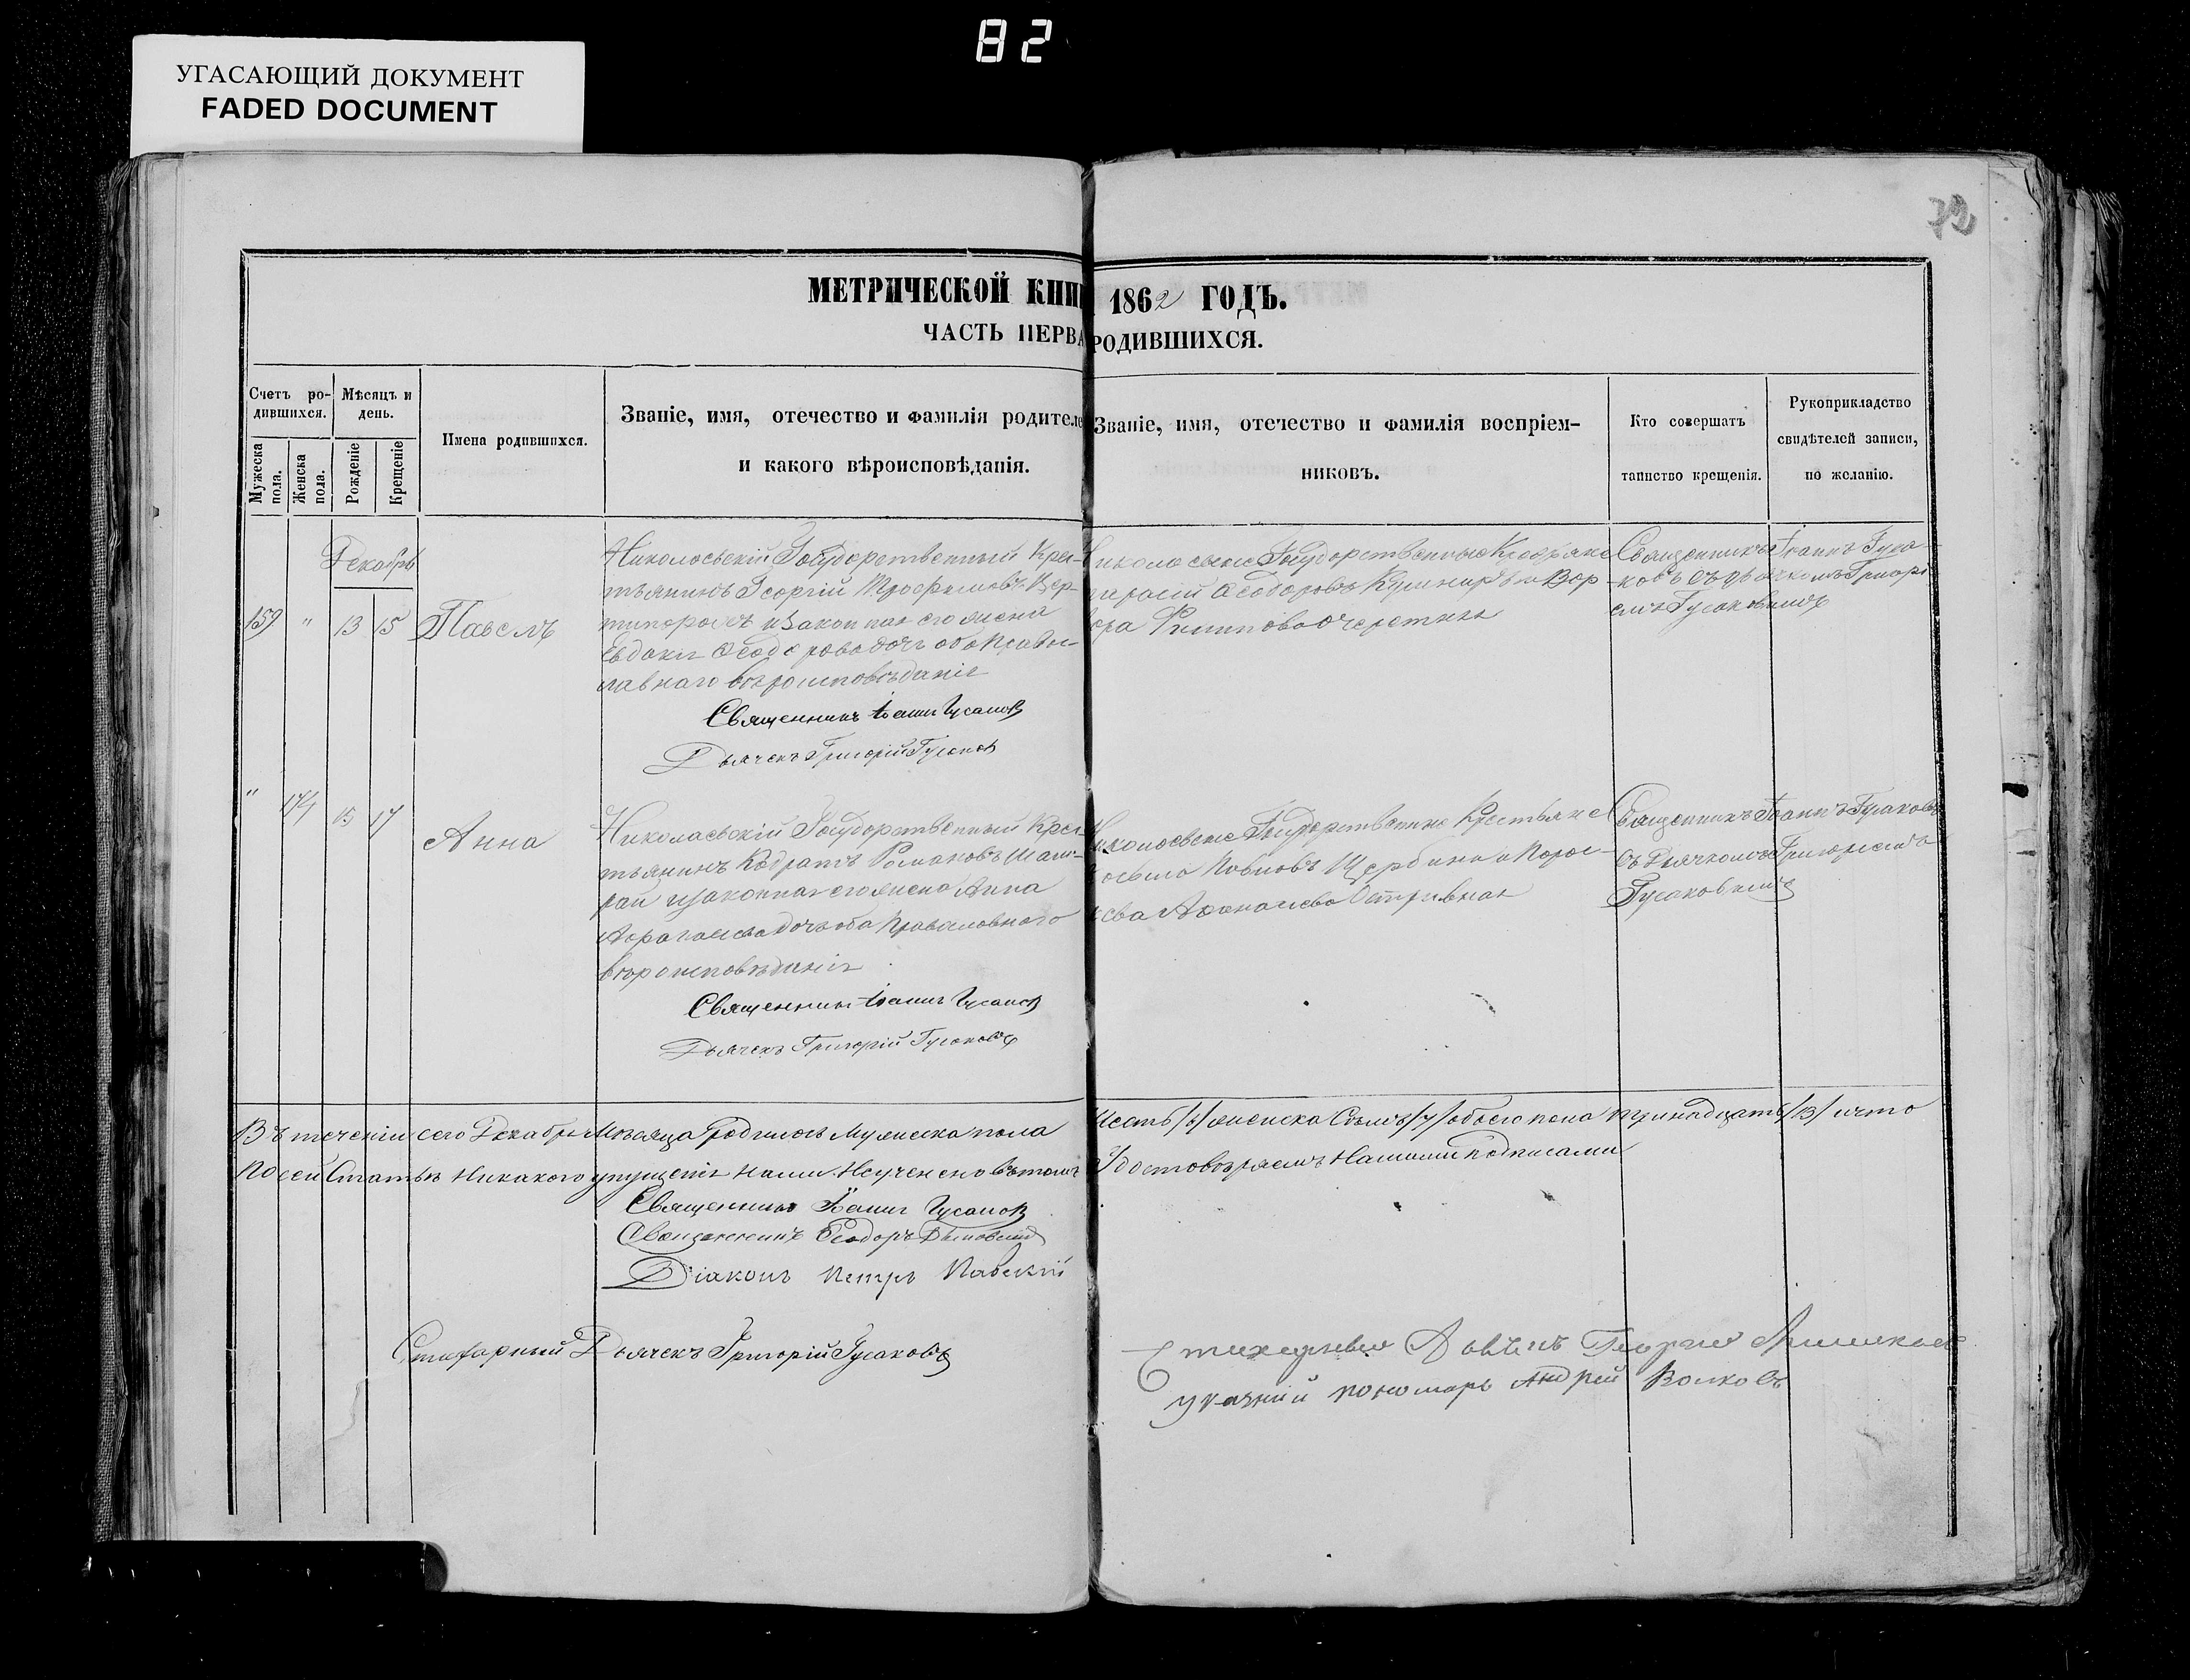 82
УГАСАЮЩИЙ ДОКУМЕНТ
FADED DOCUMENT
72
МЕТРИЧЕСКОЙ КНИГ 1862 ГОДЪ.
ЧАСТЬ ПЕРВА РОДИВШИХСЯ.
Счетъ ро-
дившихся.
Мужеска пола.
Женска пола.
Мѣсяцъ и
день.
Рожденіе
Крещеніе
Имена родившихся.
Званіе, имя, отечество и фамилія родителе
и какого вѣроисповѣданія.
Званіе, имя, отечество и фамилія воспріем-
никовъ.
Кто совершатъ
таинство крещенія.
Рукоприкладство
свидѣтелей записи,
по желанію.
Декабрь
159 " 13 15 Павелъ
Николаевскій Государственный Крес-
тьянинъ Георгій Трофимовъ
и законная его жена
Евдокія Ѳеодорова дочь оба Правос-
лавнаго вѣроисповѣданія
Священникъ Іоаннъ Гусаковъ
Дьячекъ Григорій Гусаковъ
Государственные Крестьяне
Ѳеодоровъ Кушниръ и Вар
Филиппова
Священникъ Іоаннъ Гуса-
ковъ съ дьячкомъ Григорі
емъ Гусаковымъ
" 174 15 17 Анна
Николаевскій Государственный Крес-
тьянинъ Кодратъ Романовъ Шам-
рай и законная его жена Анна
дочь оба Православнаго
вѣроисповѣданія
Священникъ Іоаннъ Гусаковъ
Дьячекъ Григорій Гусаковъ
Государственные Крестьяне
Павловъ Щербина и Парас-
Островная
Священникъ Іоаннъ Гусаковъ
съ Дьячкомъ Григоріемъ
Гусаковымъ
Въ теченіи сего Декабря Мѣсяца родилось Мужеска пола Шесть /6/ женска Семь /7/ обоего пола тринадцать /13/ и что
По сей Статьѣ Никакого упущенія Нами Неучинено въ томъ Удостовѣряемъ Нашими подписами
Священникъ Іоаннъ Гусаковъ
Священникъ Ѳеодоръ
Діаконъ Петръ Павскій
Стихарный Дьячекъ Григорій Гусаковъ
Стихарный Георгій
пономарь Андрей Волковъ